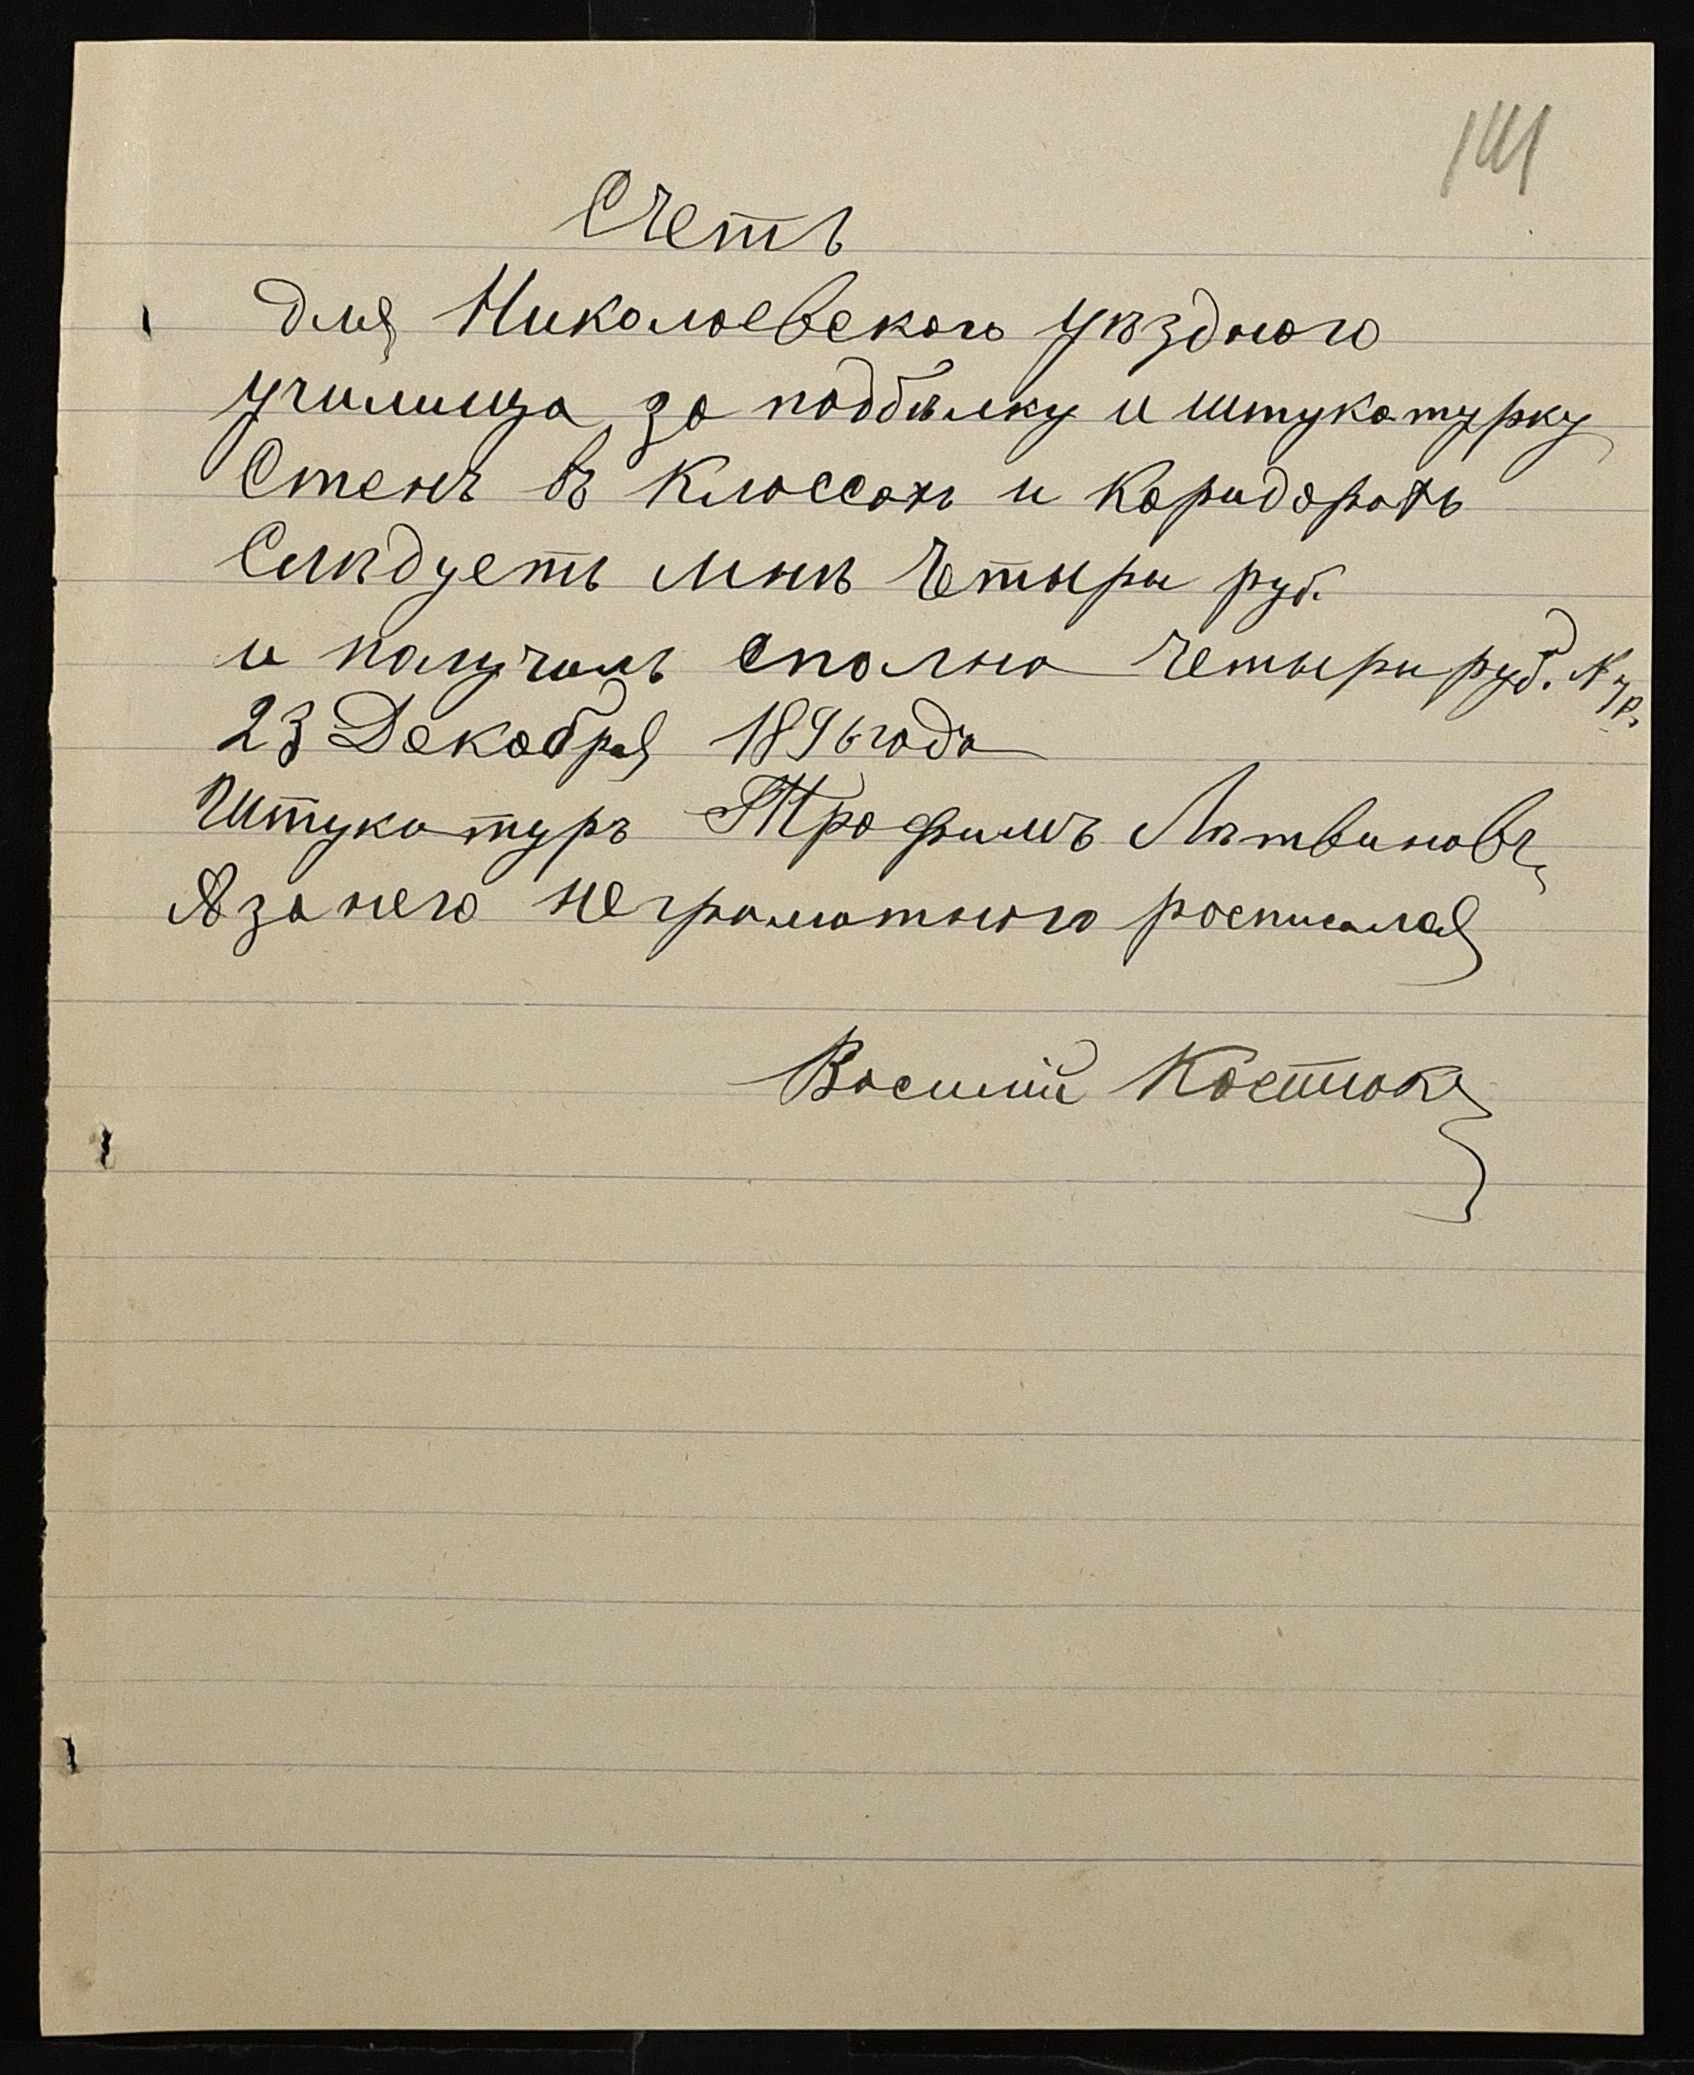 141
Счетъ
для Николаевскаго уѣзднаго
училища за подбѣлку и штукатурку
Стенъ въ Классахъ и Каридорахъ
Слѣдуетъ мнѣ Четыри руб.
и получилъ сполна четыри руб.
23 Декабря 1896 года
Штукатуръ Трофимъ Литвиновъ
А за него неграмотнаго росписался
Василій Костюкъ